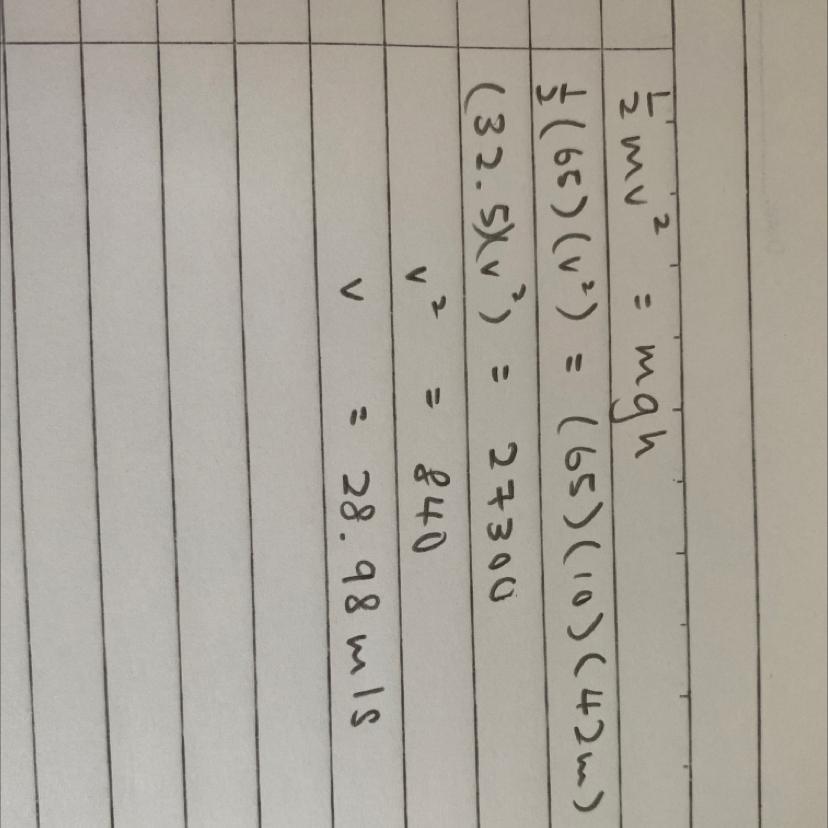 ½mv² = mgh
½(65)(v²) = (65)(10)(42m)
(32.5)(v²) = 27300
v² = 840
v = 28.98 m/s